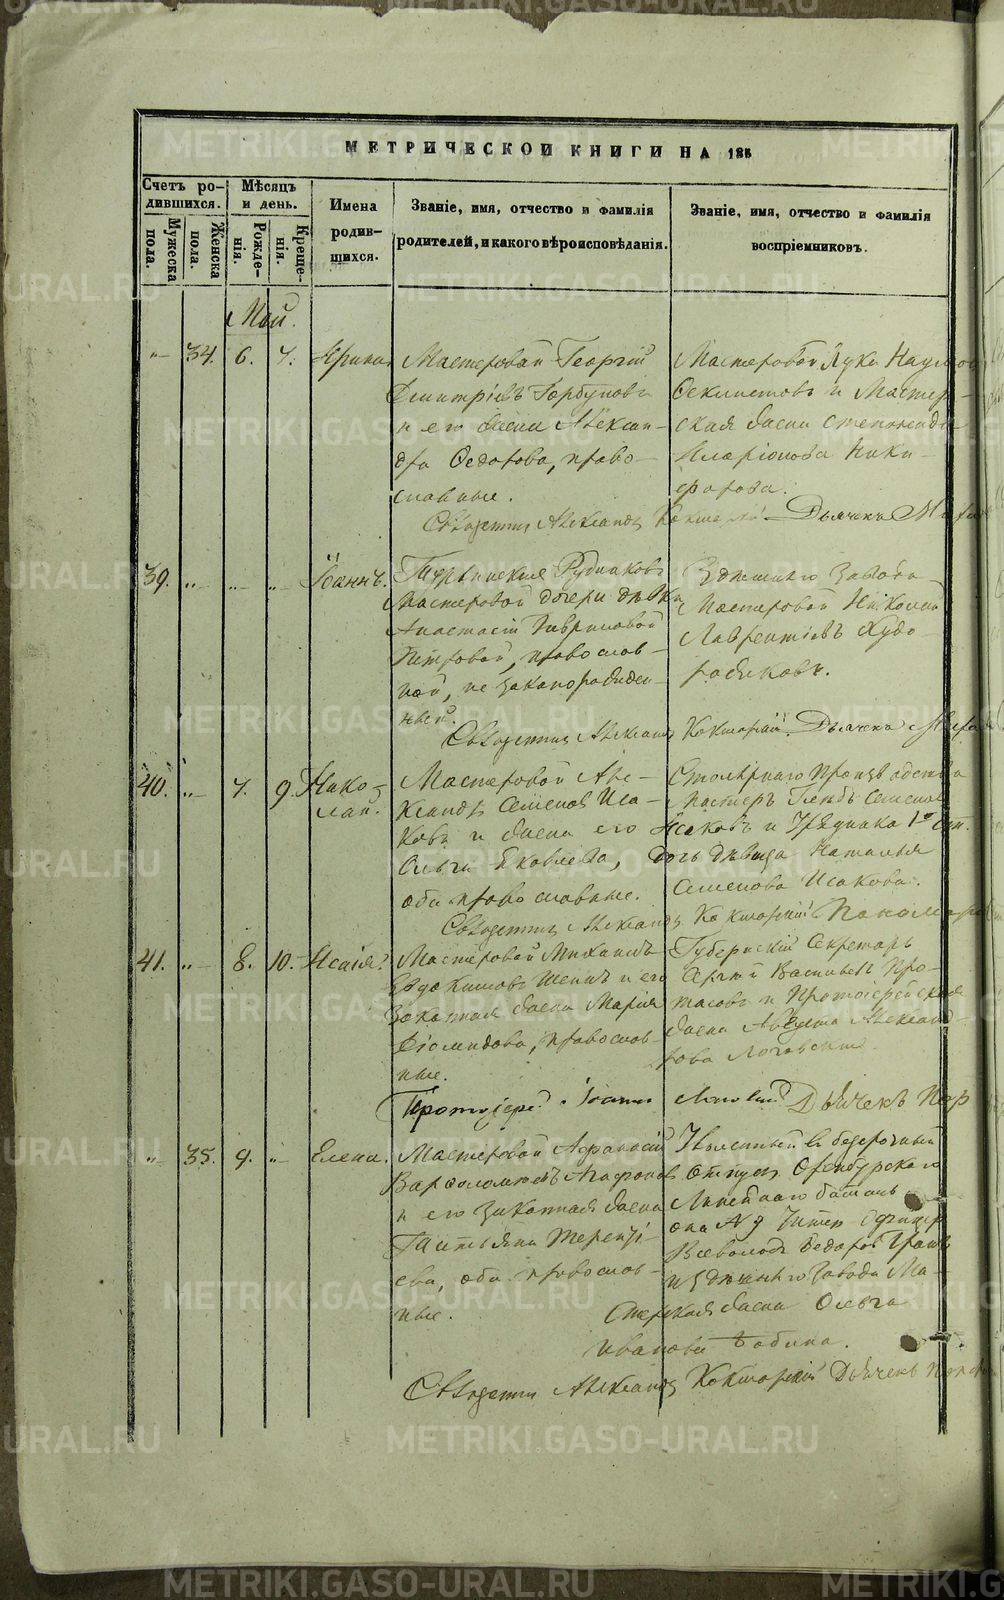 МЕТРИЧЕСКОЙ КНИГИ НА 185
Счетъ ро-
дившихся.
Мужеска
пола.
Женска
пола.
Мѣсяцъ
и день.
Рожде-
нія.
Креще-
нія.
Имена
родив-
шихся.
Званіе, имя, отчество и фамилія
родителей, и какого вѣроисповѣданія.
Званіе, имя, отчество и фамилія
воспріемниковъ.
Май.
34. 6. 7. Ирина
Мастеровой Георгій
Димитріевъ Горбуновъ
и его жена Алексан-
дра Федорова, право-
славные.
Мастеровой Лука Наумов
и Мастер-
ская жена Степанида
Иларіонова Ники-
форова.
Священник Александр Кокшарскій Дьячекъ
39. Іоаннъ.
Турьинских Рудников
Мастеровой дочери дѣвки
Анастасіи Гавриловой
Петровой, православ-
ной, незаконорожден-
ный.
Здешняго Завода
Мастеровой Николай
Лаврентіевъ Худо-
рожковъ.
Священник Александр Кокшарскій. Дьячекъ
40. 7. 9. Нико-
лай.
Мастеровой Але-
ксандръ Семенов Иса-
ковъ и жена его
Ольга Яковлева,
оба православные.
Столярнаго производства
мастеръ Глебъ Семенов
Исаковъ и Урядника 1й ст.
дочь дѣвица Наталья
Семенова Исакова.
Священник Александр Кокшарскій Пономарь
41. 8. 10. Исаія.
Мастеровой Михаилъ
Евдокимовъ Шеинъ и его
законная жена Марія
Діомидова, православ-
ные.
Губернскій Секретарь
Сергій Васильев Про-
тасовъ и Протоіерейская
жена Августа Александ-
рова
Протоіерей Іоаннъ Дьячекъ
35. 9. Елена.
Мастеровой Афанасій
Варфоломеевъ Агафонов
и его законная жена
Татьяна Терентi-
ева, оба православ-
ные.
Уволенный в безсрочный
отпускъ Оренбургскаго
Линейнаго баталь-
она № 9 Унтер Офицер
Всеволодъ Федоров
и здешняго Завода Ма-
стерская жена Ольга
Иванова Бабина.
Священник Александр Кокшарскій Дьячекъ
METRIKI.GASO-URAL.RU